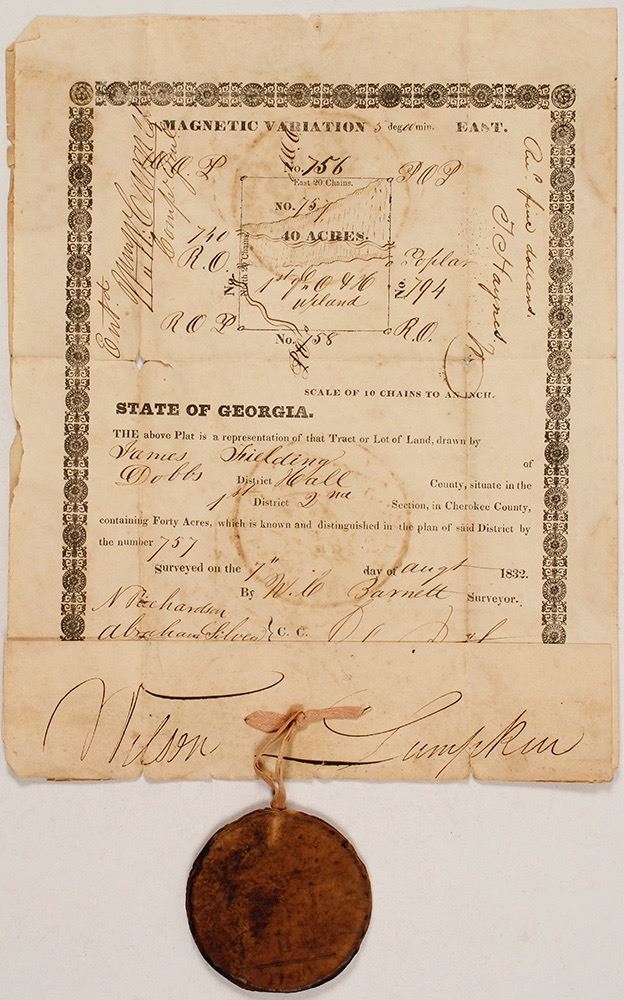 MAGNETIC VARIATION 5 deg 10 min. EAST.
R. O. P
No. 756
P O P
East 20 Chains.
No. 757
40 ACRES.
North 20 Chains.
740
R. O.
No.
1st qy O & H
upland
Poplar
No. 794
R O P
No. 758
R. O.
Recd five dollars.
T Haynes
SCALE OF 10 CHAINS TO AN INCH.
STATE OF GEORGIA.
THE above Plat is a representation of that Tract or Lot of Land, drawn by
James Fielding of
Dobbs District Hall County, situate in the
1st District 2nd Section, in Cherokee County,
containing Forty Acres, which is known and distinguished in the plan of said District by
the number 757
Surveyed on the 7th day of augt 1832.
By W. C Barnett Surveyor.
N Richardson
Abraham Silvey } C. C.
Wilson Lumpkin